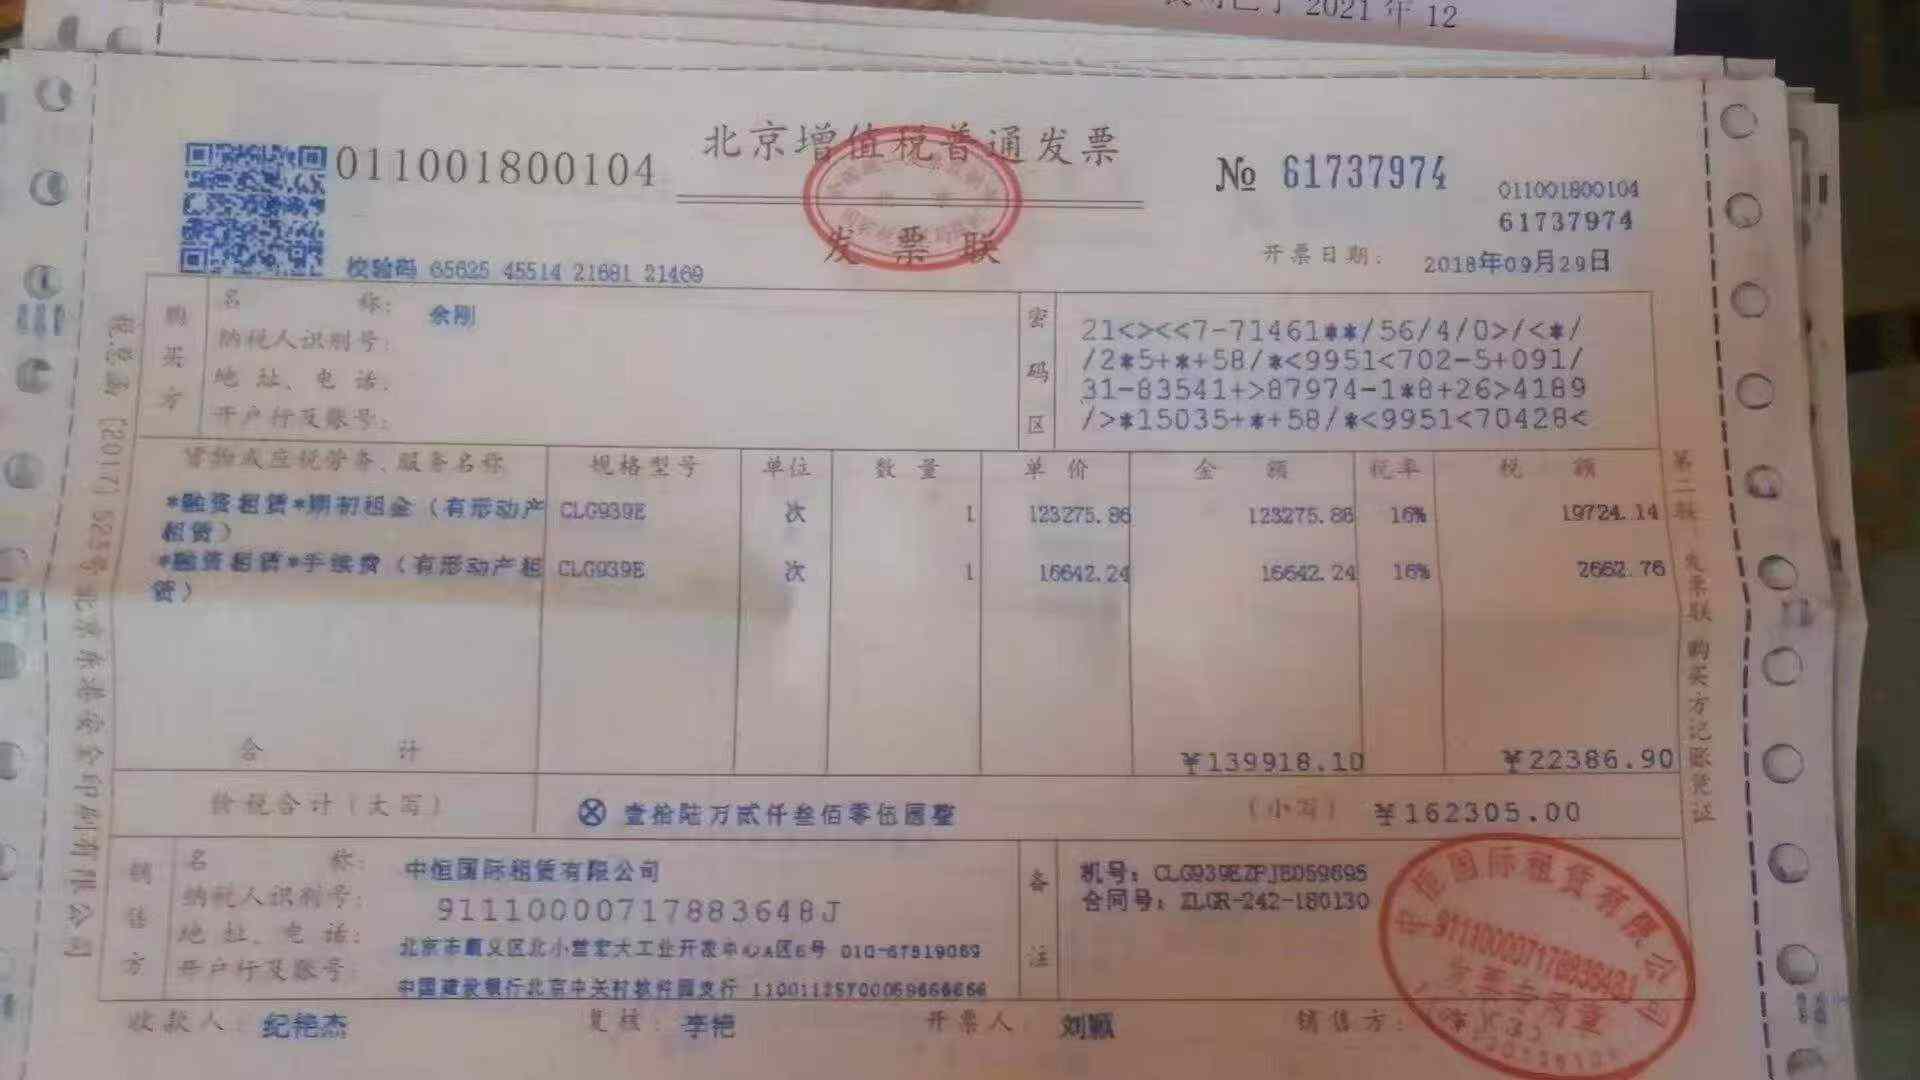 2021年12
北京增值税普通发票
发票联
011001800104
№ 61737974
011001800104
61737974
校验码 65625 45514 21681 21469
开票日期: 2018年09月29日
购买方
名 称: 余刚
纳税人识别号:
地 址、电 话:
开户行及账号:
密码区
21<><<7-71461**/56/4/0>/<*/
/2*5+*+58/*<9951<702-5+091/
31-83541+>87974-1*8+26>4189
/>*15035+*+58/*<9951<70428<
货物或应税劳务、服务名称 规格型号 单位 数 量 单 价 金 额 税率 税 额
*融资租赁*期初租金(有形动产 CLG939E 次 1 123275.86 123275.86 16% 19724.14
租赁)
*融资租赁*手续费(有形动产租 CLG939E 次 1 16642.24 16642.24 16% 2662.76
赁)
合 计 ¥139918.10 ¥22386.90
价税合计(大写) ⊗ 壹拾陆万贰仟叁佰零伍圆整 (小写) ¥162305.00
销售方
名 称: 中恒国际租赁有限公司
纳税人识别号: 91110000717883648J
地 址、电 话: 北京市顺义区北小营宏大工业开发中心A区6号 010-67819069
开户行及账号: 中国建设银行北京中关村软件园支行
备注
机号: CLG939EZPJE059695
合同号: ZLGR-242-180130
收款人: 纪艳杰 复核: 李艳 开票人: 刘颖 销售方:
中恒国际租赁有限公司
91110000717883648J
发票专用章
第二联 发票联 购买方记账凭证
税总函〔2017〕523号北京东港安全印刷有限公司